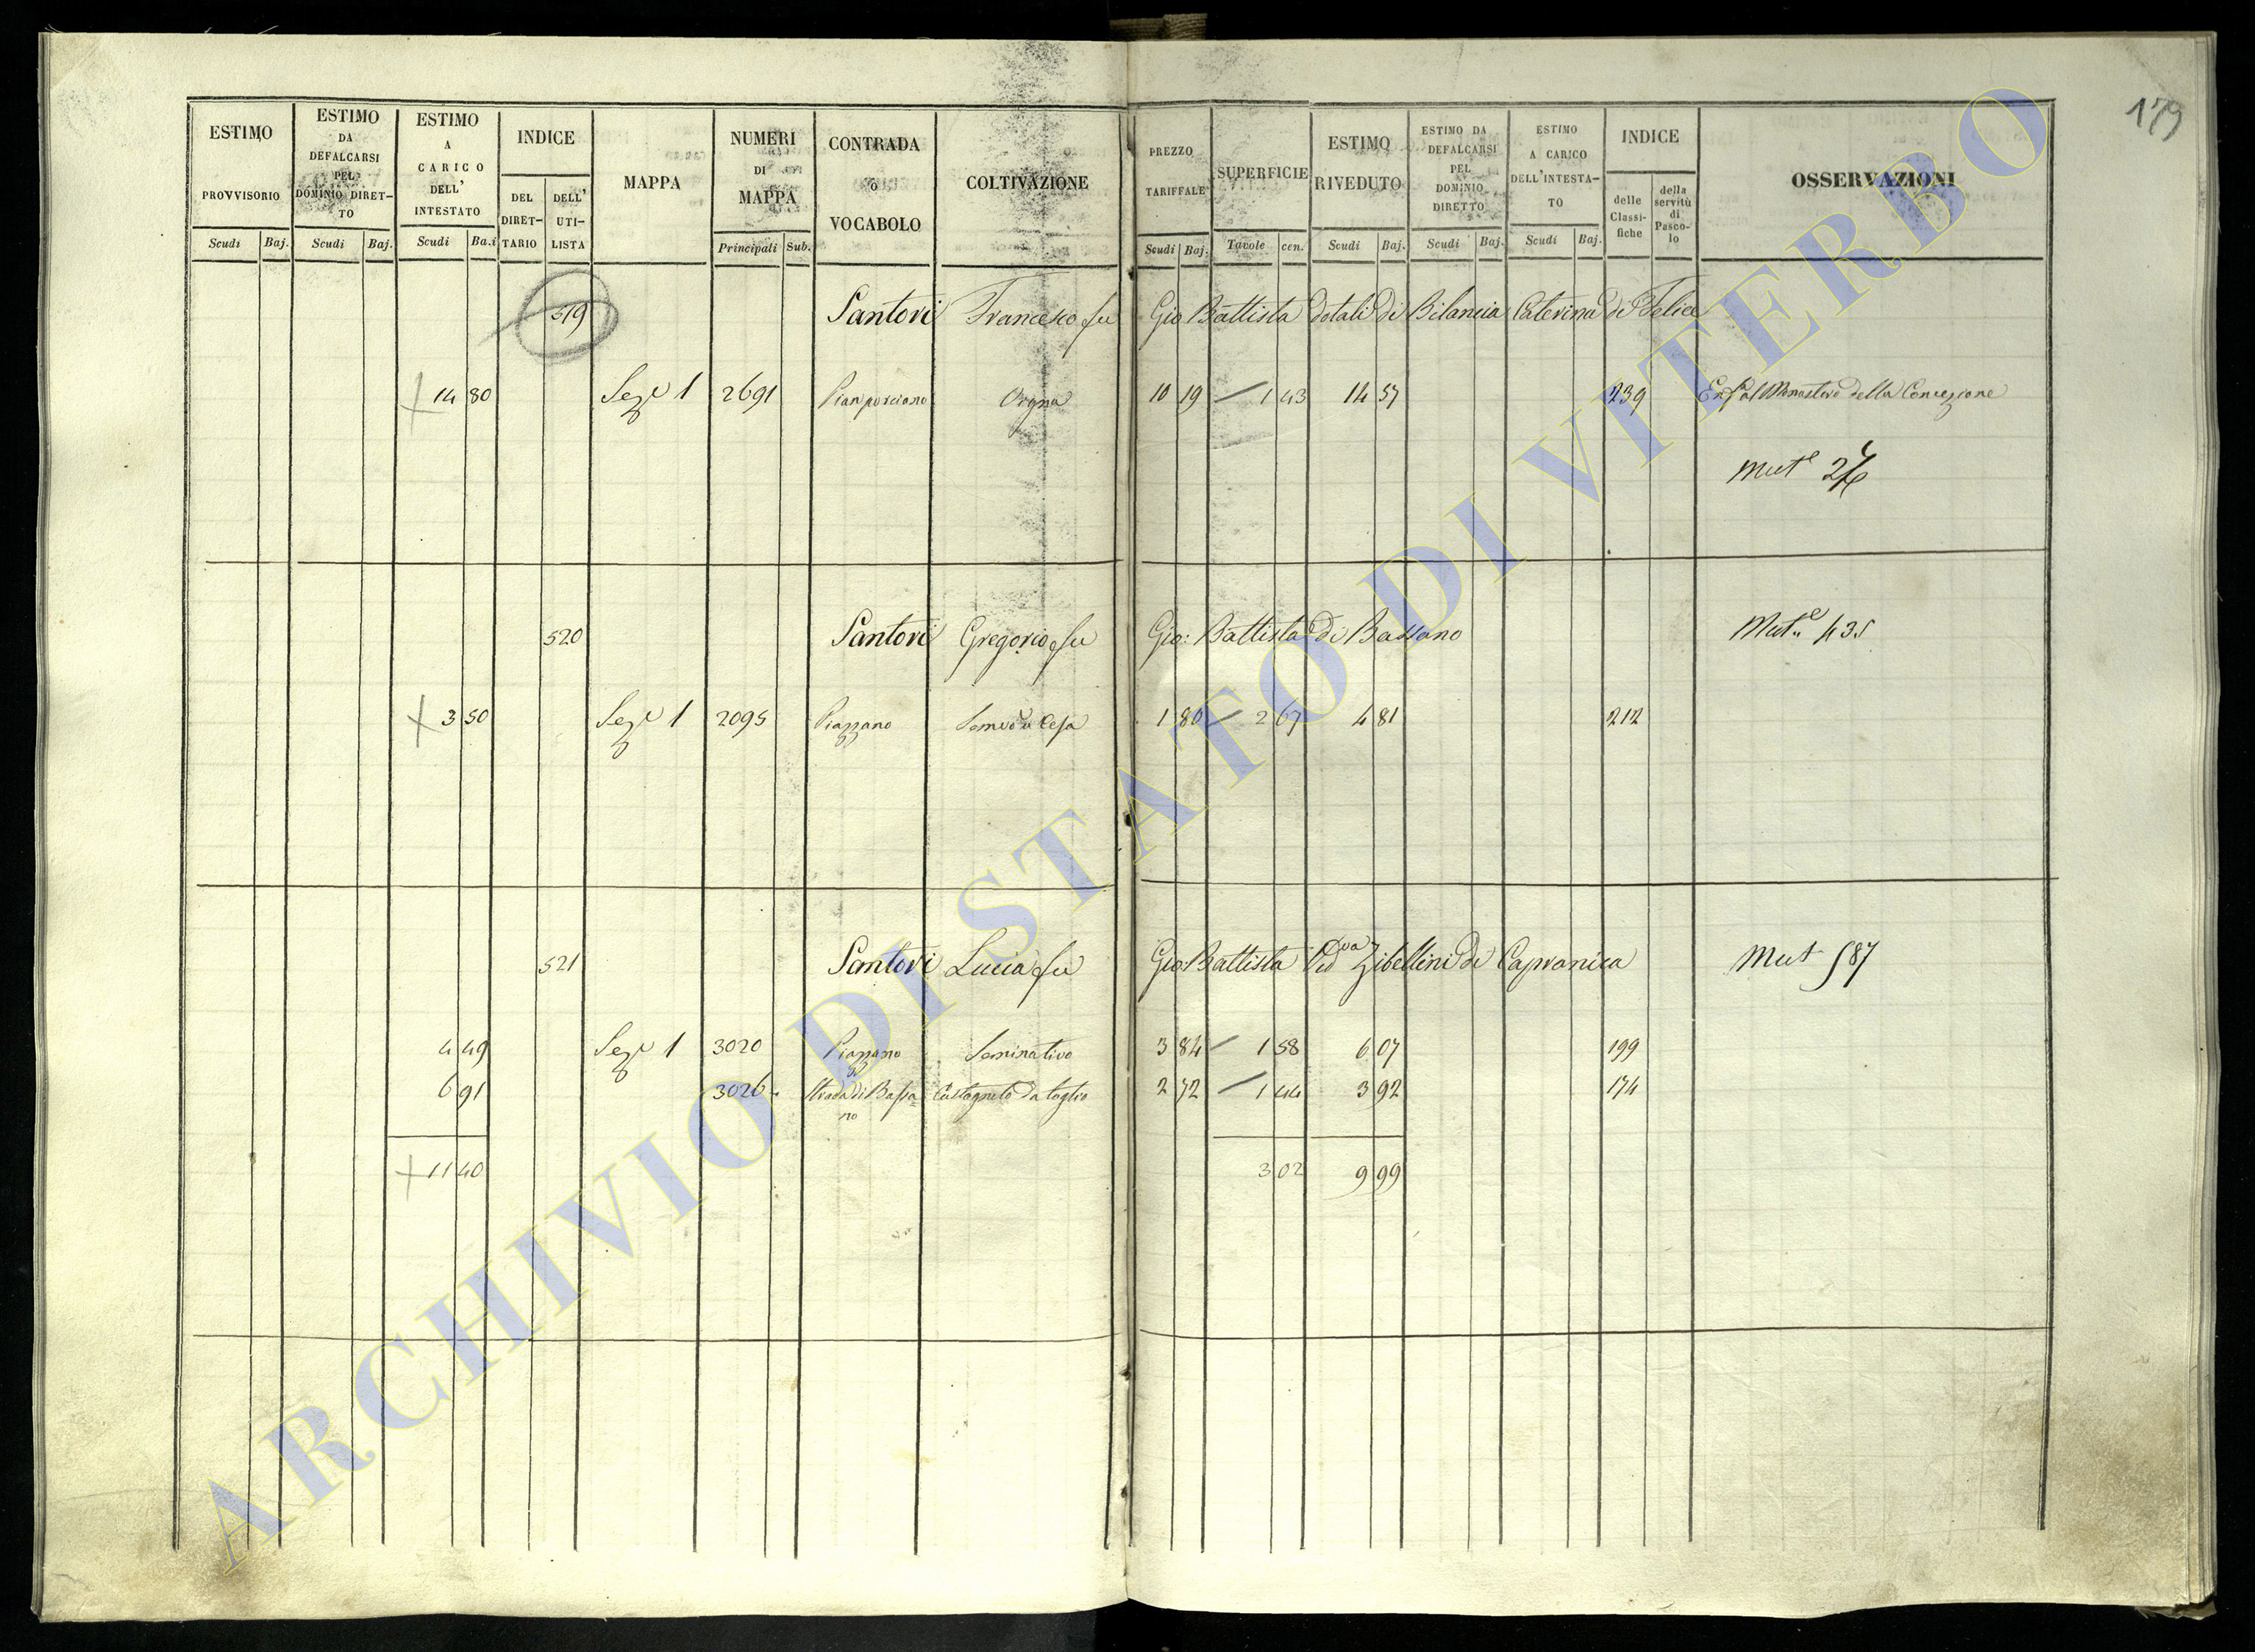 179
ESTIMO PROVVISORIO ESTIMO DA DEFALCARSI PEL DOMINIO DIRETTO ESTIMO A CARICO DELL' INTESTATO INDICE DEL DIRETTARIO DELL' UTILISTA MAPPA NUMERI DI MAPPA CONTRADA O VOCABOLO COLTIVAZIONE PREZZO TARIFFALE SUPERFICIE ESTIMO RIVEDUTO ESTIMO DA DEFALCARSI PEL DOMINIO DIRETTO ESTIMO A CARICO DELL'INTESTATO INDICE delle Classifiche della servitù di Pascolo OSSERVAZIONI
Scudi Baj. Scudi Baj. Scudi Ba.i Principali Sub. Scudi Baj. Tavole cen. Scudi Baj. Scudi Baj. Scudi Baj.
519 Santori Francesco fu Gio Battista dotali di Bilancia Caterina di Felice
14 80 Seze 1 2691 Pianporciano 10 19 1 43 14 57 239 al Monastero della Concezione
Mut.e
520 Santori Gregorio fu Gio: Battista di Bassano Mut.e 435
3 50 Seze 1 2095 Piazzano 1 80 2 67 4 81 212
521 Santori Lucia fu Gio Battista Ved.va Zibellini di Capranica Mut 587
4 49 Seze 1 3020 Piazzano Seminativo 3 84 1 58 6 07 199
6 91 3026 Strada di Bassano Castagneto da taglio 2 72 1 44 3 92 174
11 40 3 02 9 99
ARCHIVIO DI STATO DI VITERBO